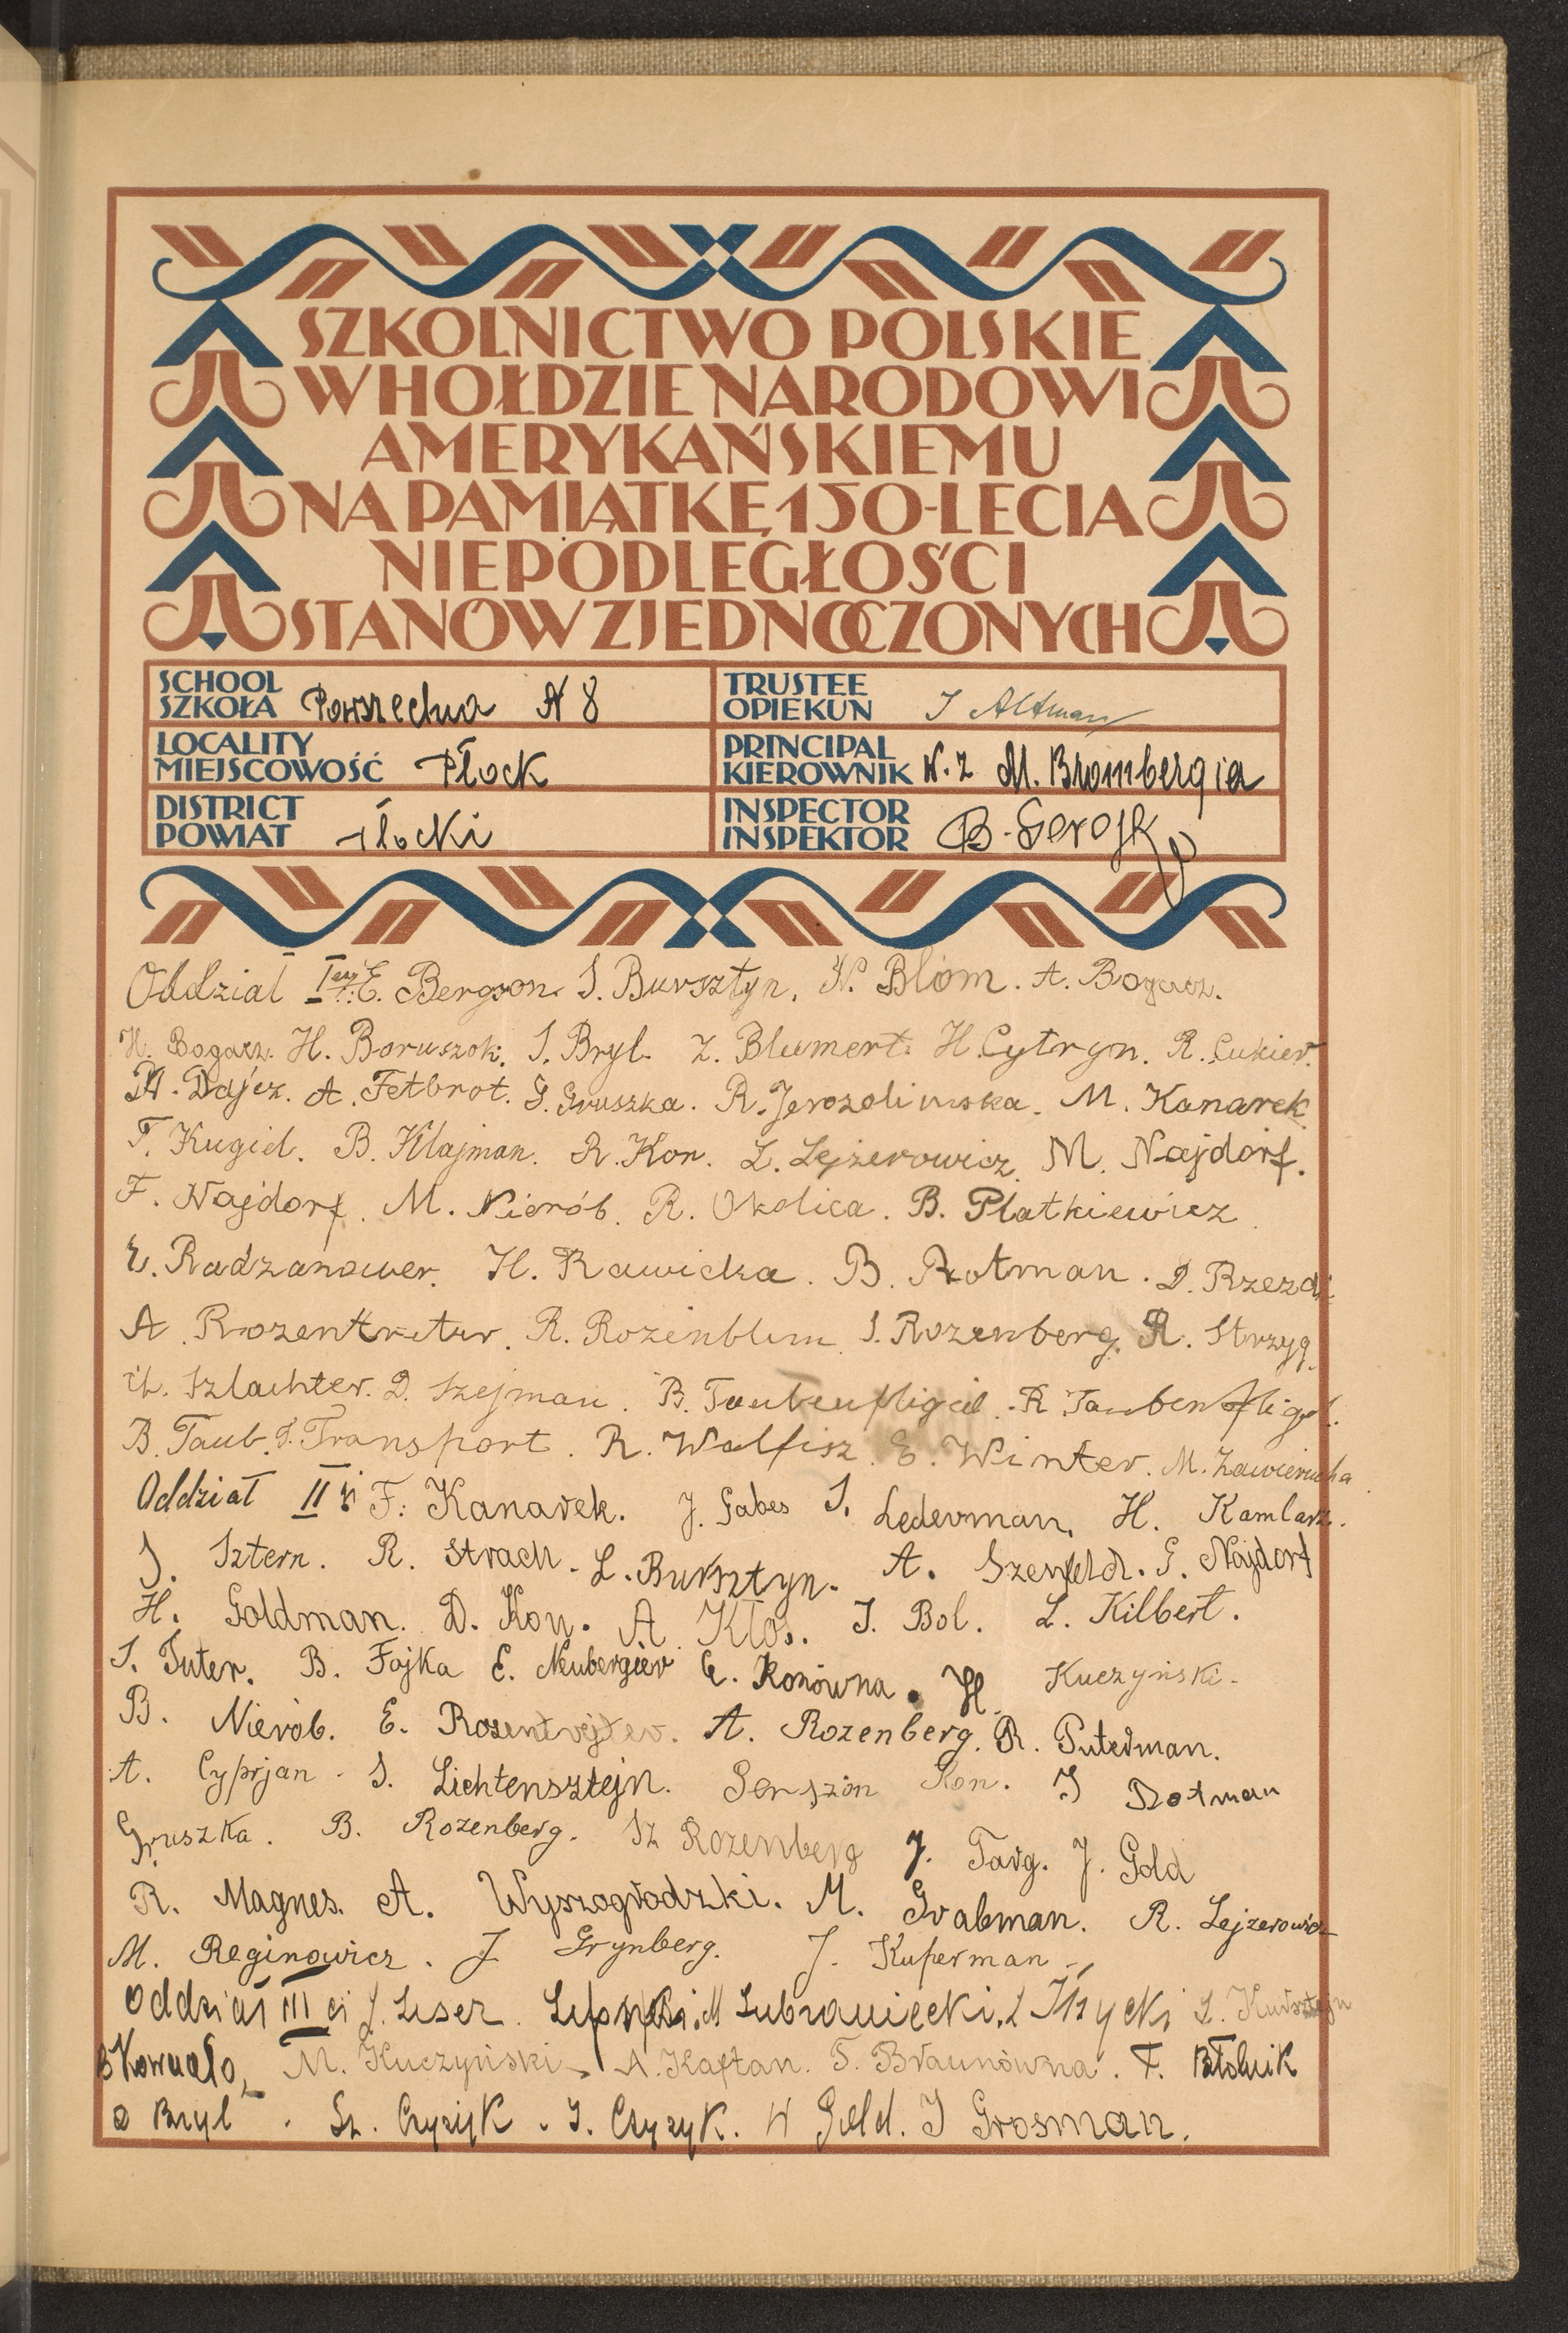 SZKOLNICTWO POLSKIE
W HOŁDZIE NARODOWI
AMERYKAŃSKIEMU
NA PAMIĄTKĘ 150-LECIA
NIEPODLEGŁOŚCI
STANÓW ZJEDNOCZONYCH
SCHOOL
SZKOŁA Powszechna N 8
TRUSTEE
OPIEKUN J Altman
LOCALITY
MIEJSCOWOŚĆ Płock
PRINCIPAL
KIEROWNIK w. z M. Brombergia
DISTRICT
POWIAT Płocki
INSPECTOR
INSPEKTOR B.
Oddział I E. Bergson. S. Bursztyn. N. Blom. A. Bogacz.
H. Bogacz. H. Boruszok. S. Bryl. Z. Blumert. H. Cytryn. R. Cukier.
M. Dajcz. A. Fetbrot. G. Gruszka. R. Jerozolimska. M. Kanarek
F. Kugiel. B. Klajman. R. Kon. L. Lejzerowicz. M. Najdorf.
F. Najdorf. M. Nierób. R. Okolica. B. Płatkiewicz
E. Radzanower. H. Rawicka. B. Rotman. D. Rzezak
A. Rozentreter. R. Rozenblum. S. Rozenberg. R. Strzyg
Szlachter. D. Szejman. B. Taubenfligiel. R Taubenfligel.
B. Taub. I. Transport. R. Walfisz. E. Winter. M. Zawierucha
Oddział II F. Kanarek. J. Gabes S. Lederman. H. Kamlarz.
S. Sztern. R. Strach. L. Bursztyn. A. Szenfeld. G. Najdorf
H. Goldman. D. Kon. A. Kłos. I. Bol. L. Kilbert.
S. Futer. B. Fajka E. Neubergier G. Konówna. H. Kuczyński.
B. Nierób. E. Rozentrejter. A. Rozenberg. R. Puterman.
A. Cyprjan. S. Lichtensztejn. Gerszon Kon. I Rotman
Gruszka. B. Rozenberg. Sz Rozenberg J. Targ. J. Gold
R. Magnes. A. Wyszogrodzki. M. Grabman. R. Lejzerowicz
M. Reginowicz. J Grynberg. J. Kuperman.
Oddział III ci J. Leser. Lipski. M Lubraniecki. I Iłżycki L. Kursztejn
B Kowadło, M. Kuczyński. A. Kaftan. T. Braunówna. F. Błotnik
Bryl. Sz. Czyżyk. I. Czyzyk. W Geld. I Grosman.